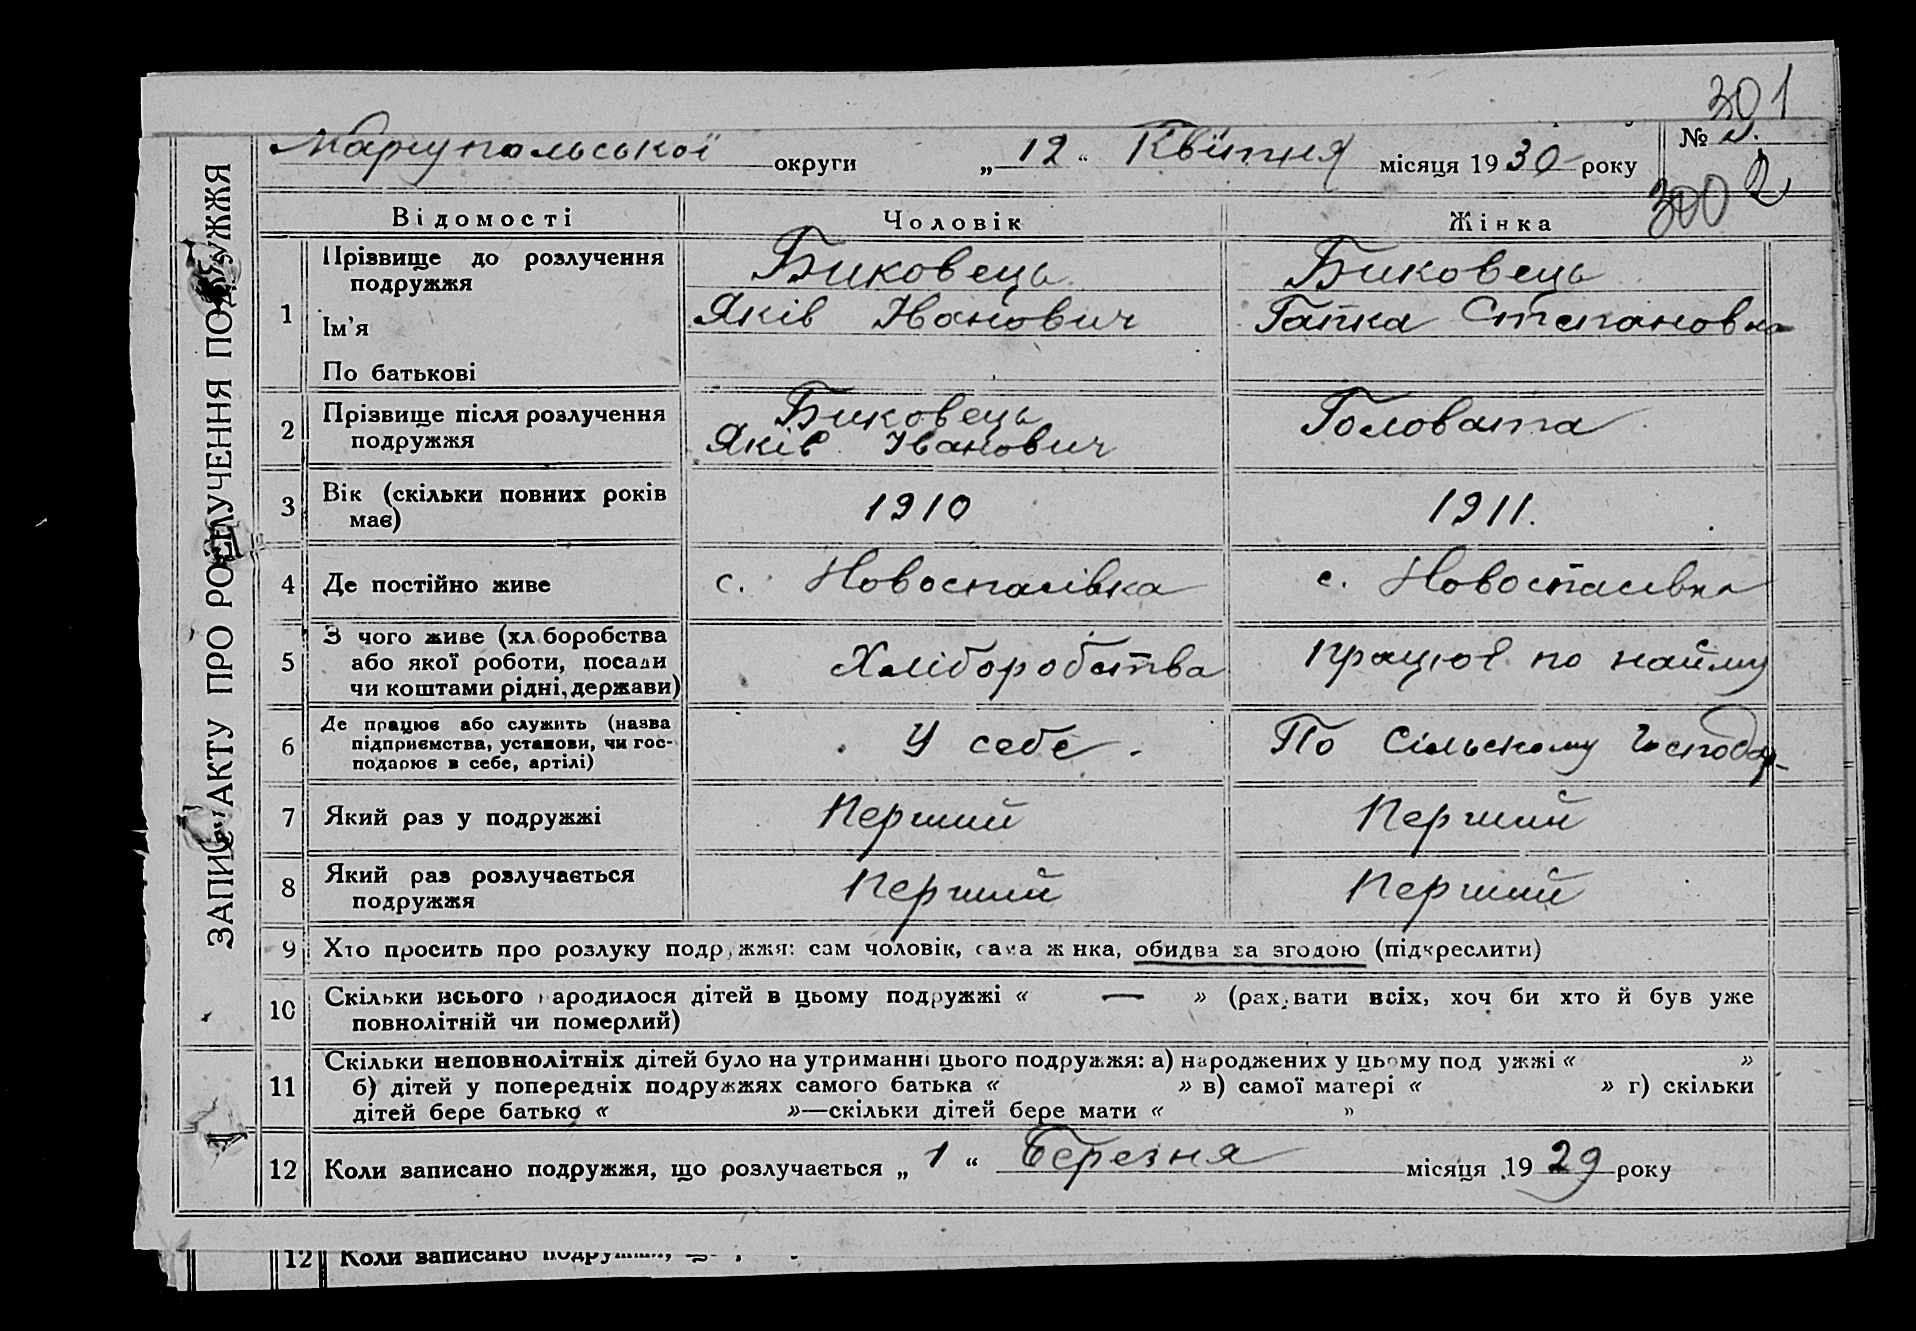 301
Маріупольської округи „ 12 “ Квітня місяця 1930 року №
2
300
ЗАПИС АКТУ ПРО РОЗЛУЧЕННЯ ПОДРУЖЖЯ
Відомості Чоловік Жінка
1 Прізвище до розлучення подружжя Биковець Биковець
Ім’я Яків Іванович Гапка Степановна
По батькові
2 Прізвище після розлучення подружжя Биковець Яків Іванович Головата
3 Вік (скільки повних років має) 1910 1911.
4 Де постійно живе с. Новоспасівка с. Новоспасівка
5 З чого живе (хліборобства або якої роботи, посади чи коштами рідні, держави) Хліборобства працює по найму
6 Де працює або служить (назва підприємства, установи, чи господарює в себе, артілі) У себе. По сільському господар-
7 Який раз у подружжі Перший Перший
8 Який раз розлучається подружжя Перший Перший
9 Хто просить про розлуку подружжя: сам чоловік, сама жінка, обидва за згодою (підкреслити)
10 Скільки всього народилося дітей в цьому подружжі « — » (рахувати всіх, хоч би хто й був уже
повнолітній чи померлий)
11 Скільки неповнолітніх дітей було на утриманні цього подружжя: а) народжених у цьому подружжі « »
б) дітей у попередніх подружжях самого батька « » в) самої матері « » г) скільки
дітей бере батько « »—скільки дітей бере мати « »
12 Коли записано подружжя, що розлучається „ 1 “ Березня місяця 1929 року
12 Коли записано подружжя,